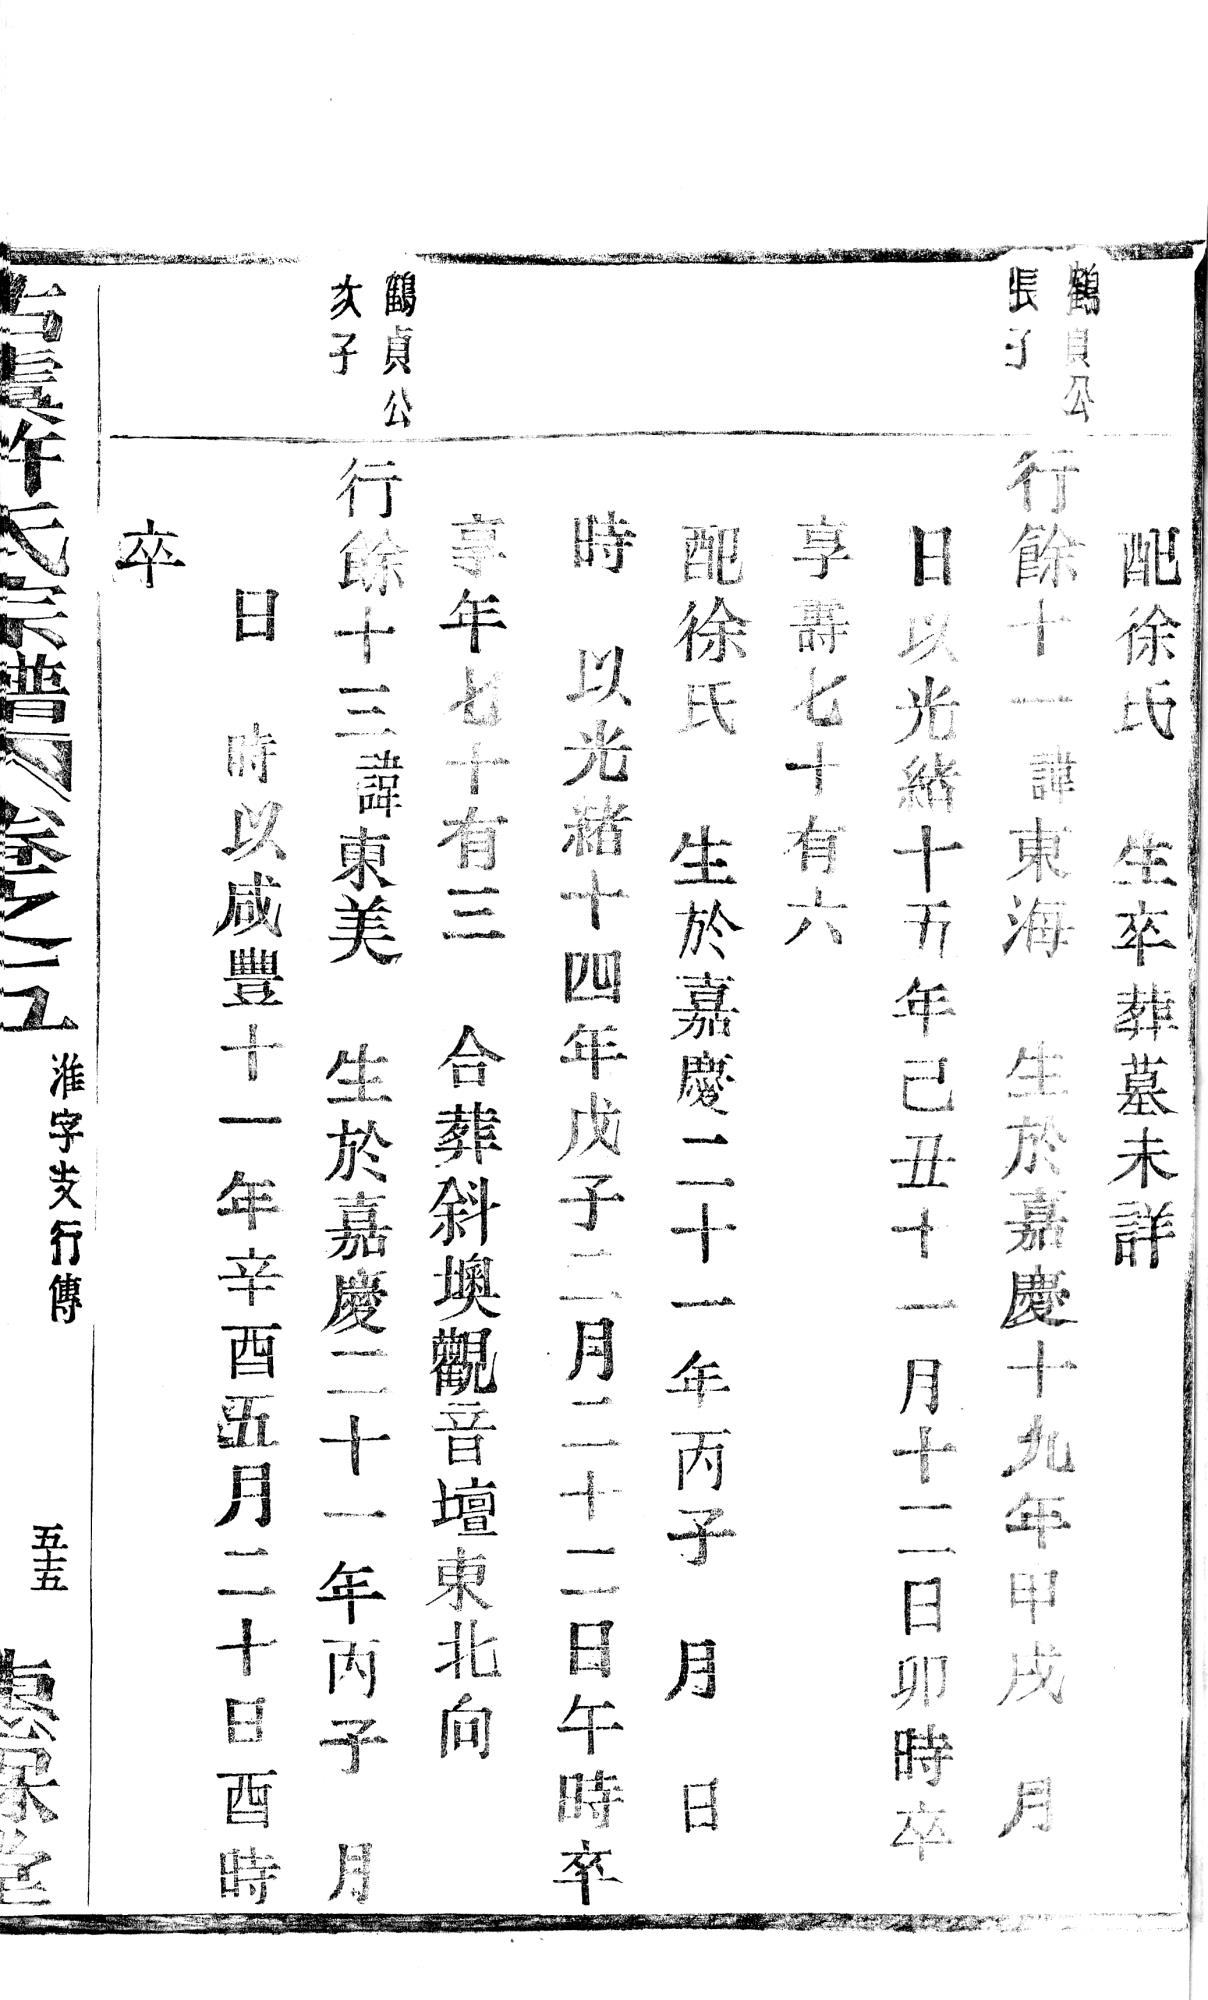 配徐氏　生卒葬墓未詳
鶴貞公
長子
行餘十一諱東海　生於嘉慶十九年甲戌　月
日以光緒十五年己丑十一月十二日卯時卒
享壽七十有六
配徐氏　生於嘉慶二十一年丙子　月　日
時　以光緒十四年戊子二月二十二日午時卒
享年七十有三　合葬斜墺觀音壇東北向
鶴貞公
次子
行餘十三諱東美　生於嘉慶二十一年丙子　月
日　時以咸豐十一年辛酉五月二十日酉時
卒
古虞許氏宗譜　卷之五
淮字支行傳
五十五
惠保堂